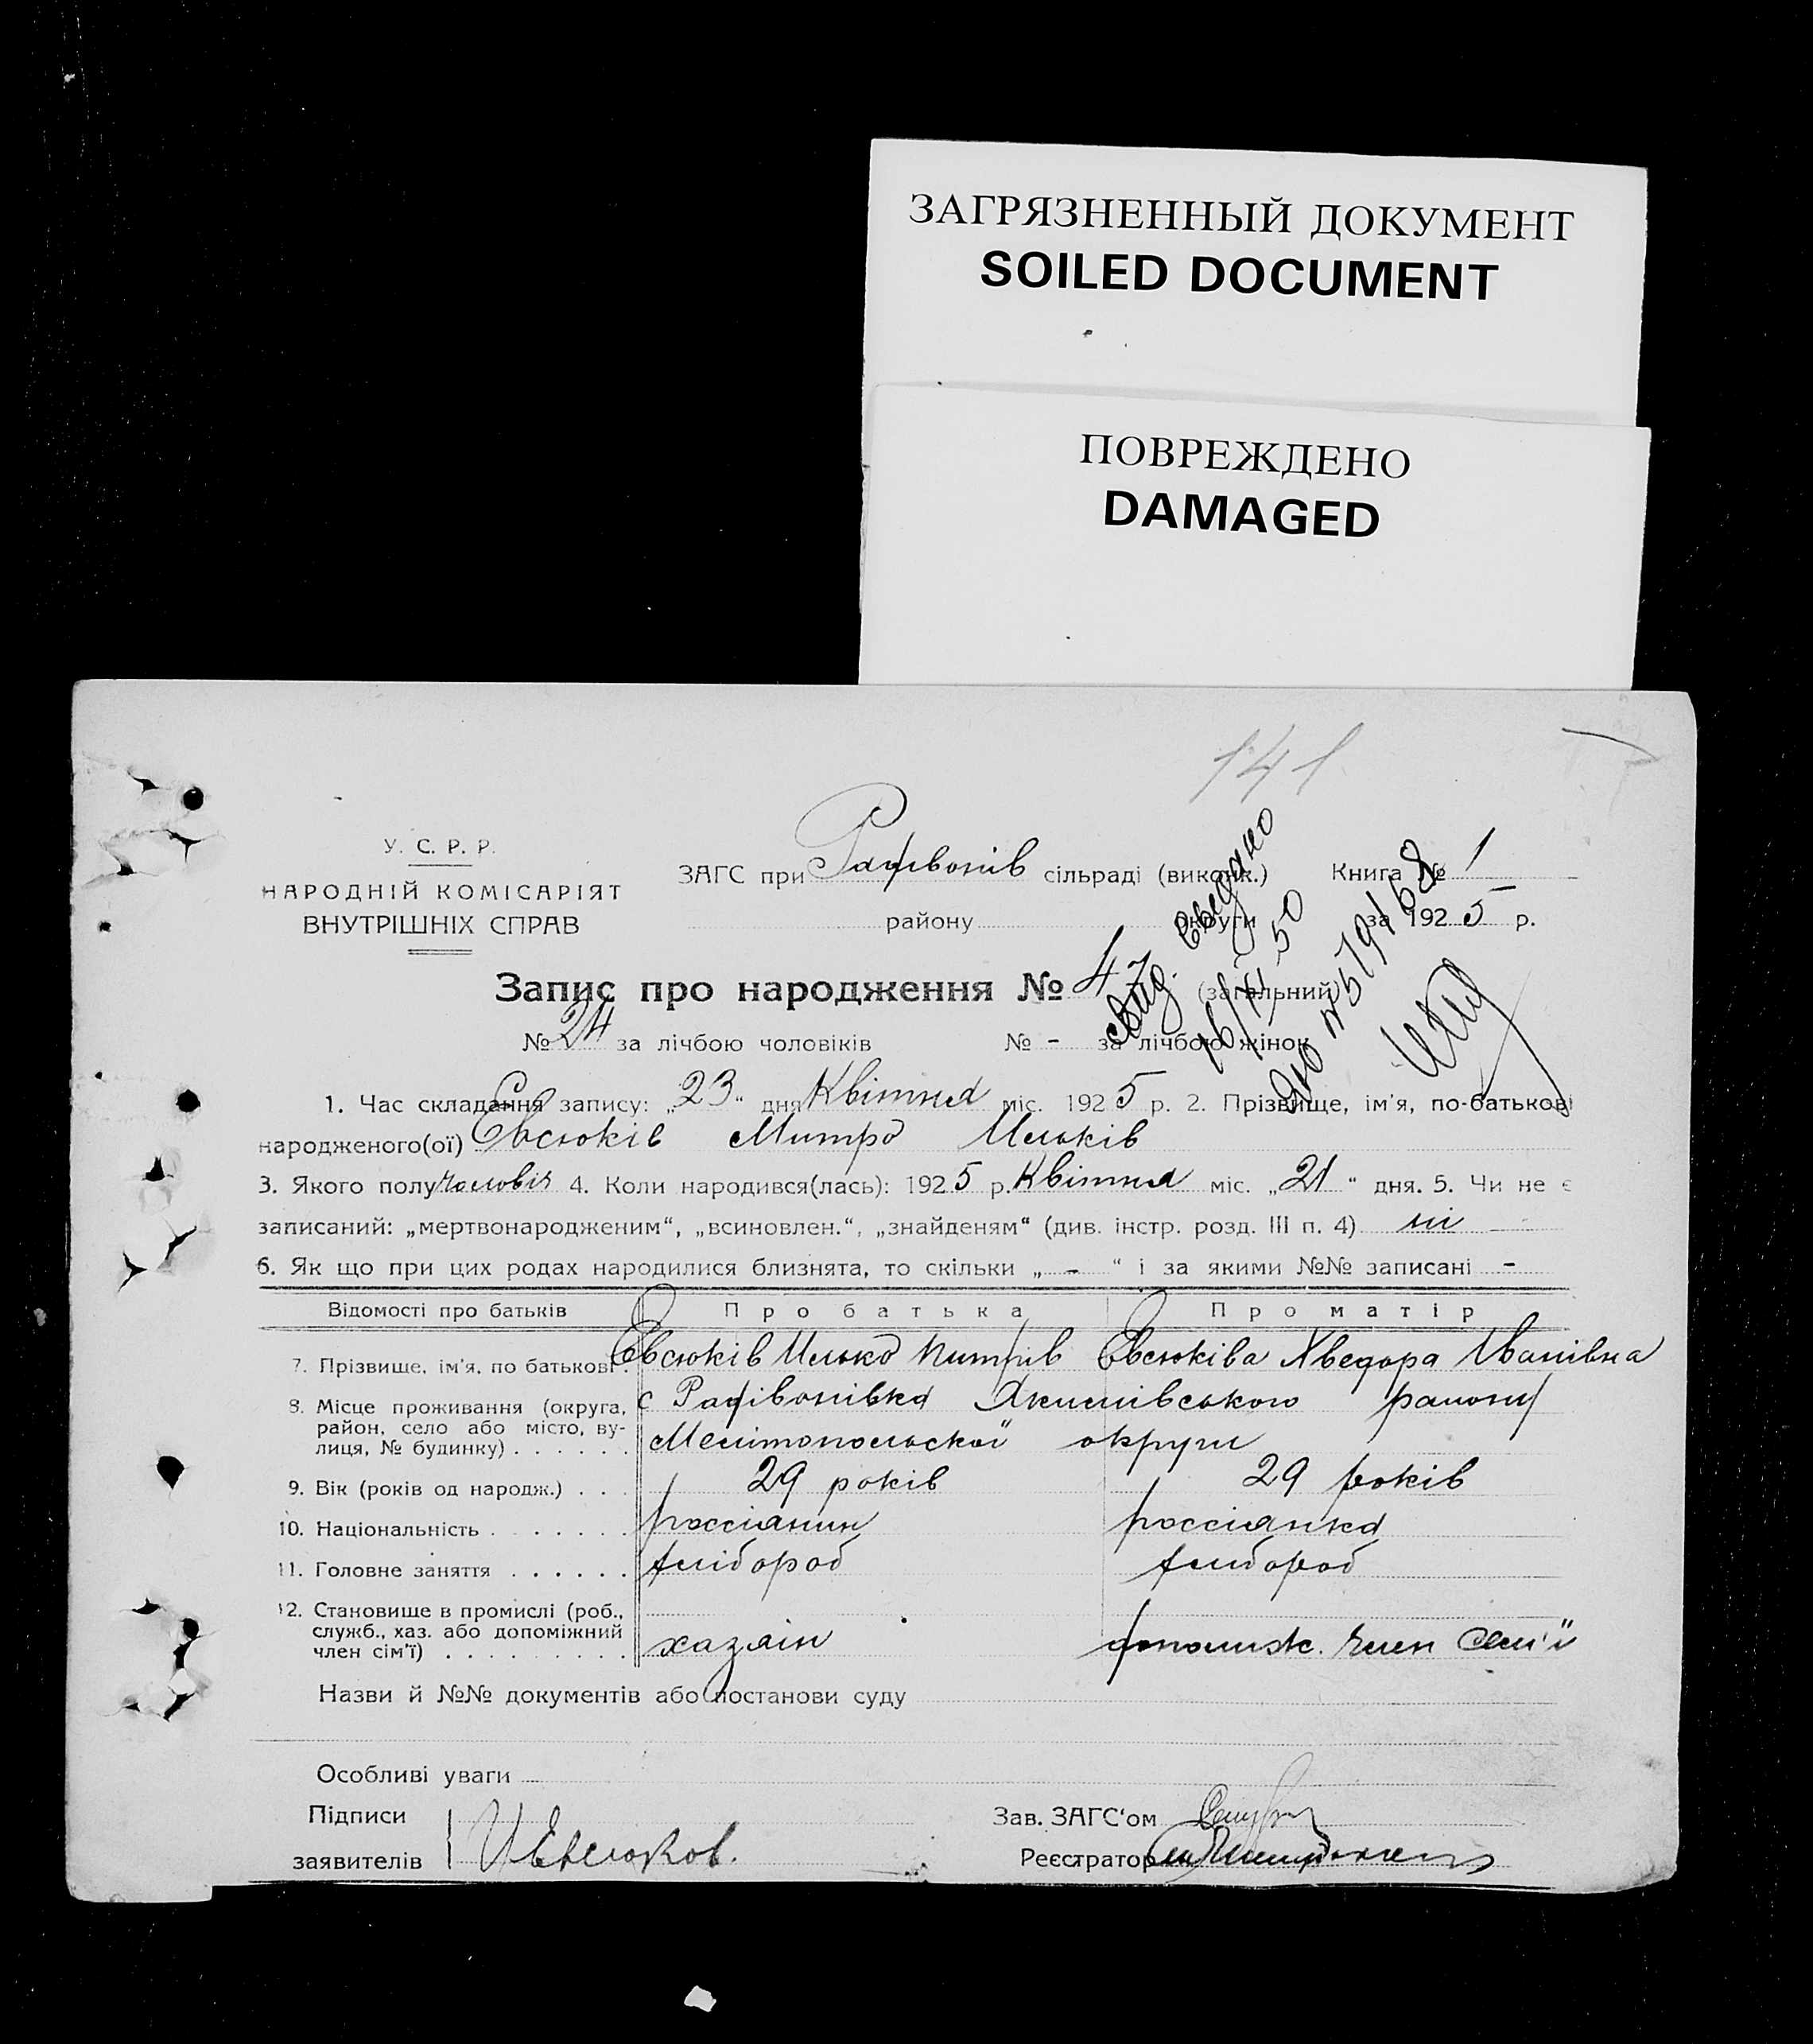 ЗАГРЯЗНЕННЫЙ ДОКУМЕНТ
SOILED DOCUMENT
ПОВРЕЖДЕНО
DAMAGED
141
У. С. Р. Р.
НАРОДНІЙ КОМІСАРІЯТ
ВНУТРІШНІХ СПРАВ
ЗАГС при Радівонів сільраді (виконк.) Книга № 1
району округи за 1925 р.
Запис про народження № 47 (загальний)
№ 24 за лічбою чоловіків № - за лічбою жінок
16/XI 50
1. Час складання запису: „23“ дня Квітня міс. 1925 р. 2. Прізвище, ім'я, по-батькові
народженого(ої) Євсюків Митро Ильків
3. Якого полу чоловіч 4. Коли народився(лась): 1925 р. Квітня міс. „21“ дня. 5. Чи не є
записаний: „мертвонародженим“, „всиновлен.“, „знайденям“ (див. інстр. розд. III п. 4) ні
6. Як що при цих родах народилися близнята, то скільки „-“ і за якими №№ записані -
Відомості про батьків Про батька Про матір
7. Прізвище, ім'я, по батькові. Євсюків Илько Питрів Євсюківа Хведора Иванівна
8. Місце проживання (округа, район, село або місто, вулиця, № будинку) . . . . . . с Радівонівка Якимівського району
Мелітопольскої округи
9. Вік (років од народж.) . . . 29 років 29 років
10. Національність . . . . . . . россіянин россіянка
11. Головне заняття . . . . . . хлібороб хлібороб
12. Становище в промислі (роб., служб., хаз. або допоміжний член сім'ї) . . . . . . . . . хазяін допоміж. член сем'ї
Назви й №№ документів або постанови суду
Особливі уваги
Підписи
заявителів И Евсюков.
Зав. ЗАГС'ом
Реєстратор